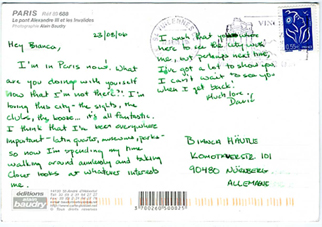 PARIS
Le pont Alexandre III et les Invalides
Photographie Alain Baudry
23/08/06
Hey Bianca,
I'm in Paris now. What
are you doing with yourself
now that I'm not there?! I'm
loving this city - the sights, the
clubs, the books... it's all fantastic.
I think that I'm been everywhere
important - latin quarter, museums, parks -
so now I'm spending my time
walking around aimlessly and taking
closer looks at whatever interests
me.
I wish that you were
here to see the city with
me, but perhaps next time,
I've got a lot to show you.
I can't wait to see you
when I get back!
Much love,
David
BIANCA HÄUTLE
101
90480 NÜRNBERG
ALLEMAGNE
éditions
alain
baudry
3 700260 560825